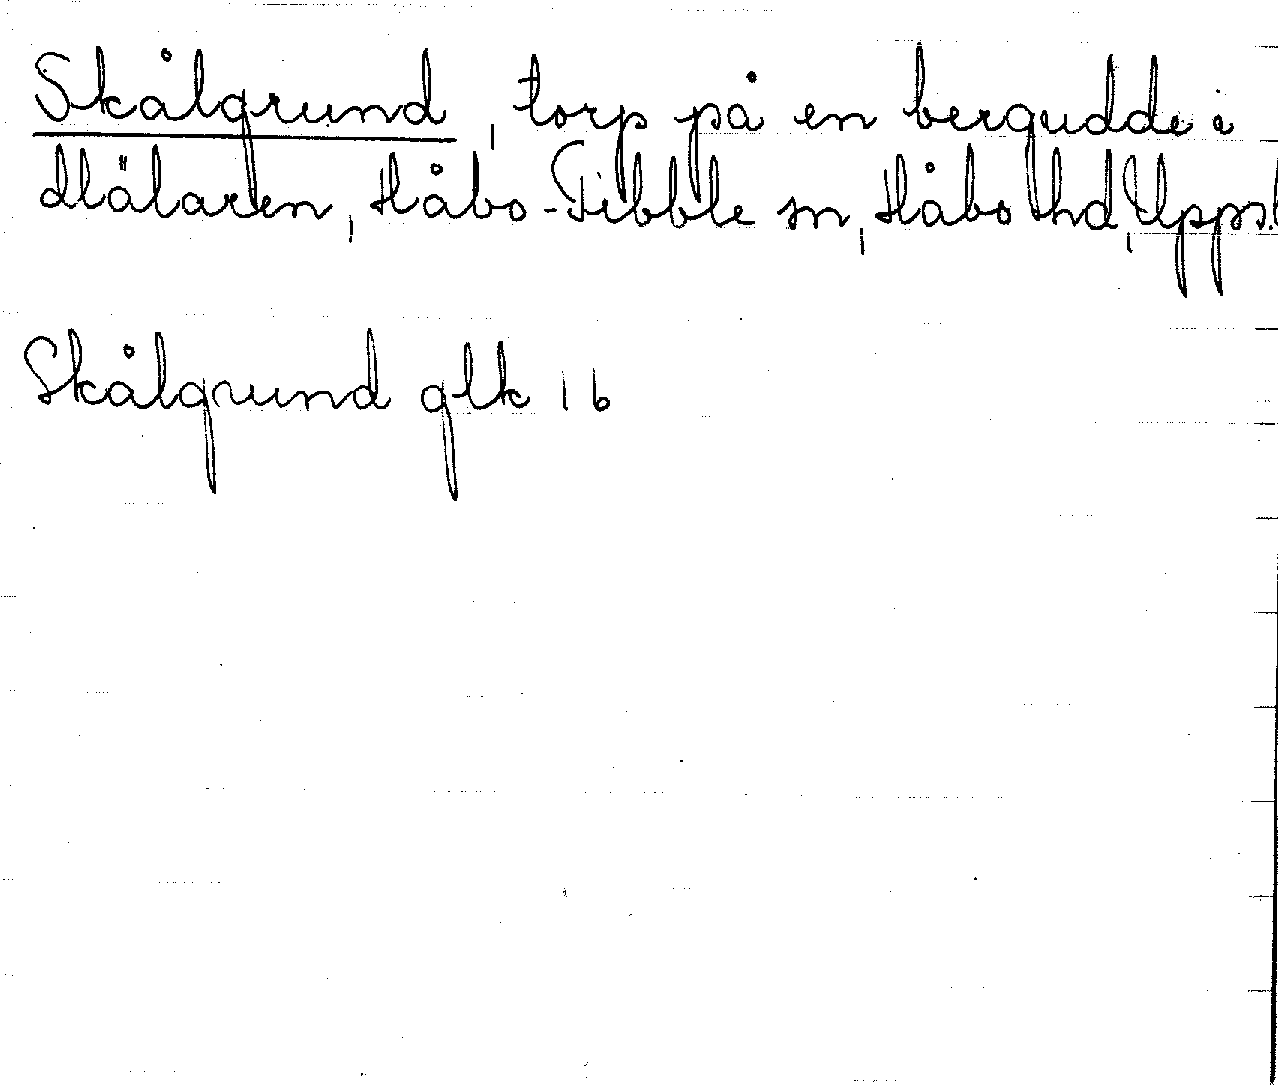 Skålgrund, torp på en bergudde i
Mälaren, Håbo-Tibble sn, Håbo hd, Upps.l
Skålgrund glk 1 b